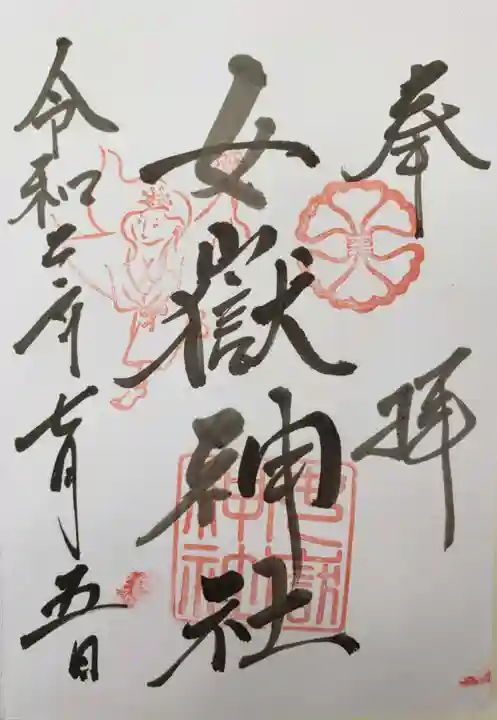 奉拝
女嶽神社
令和二年七月五日